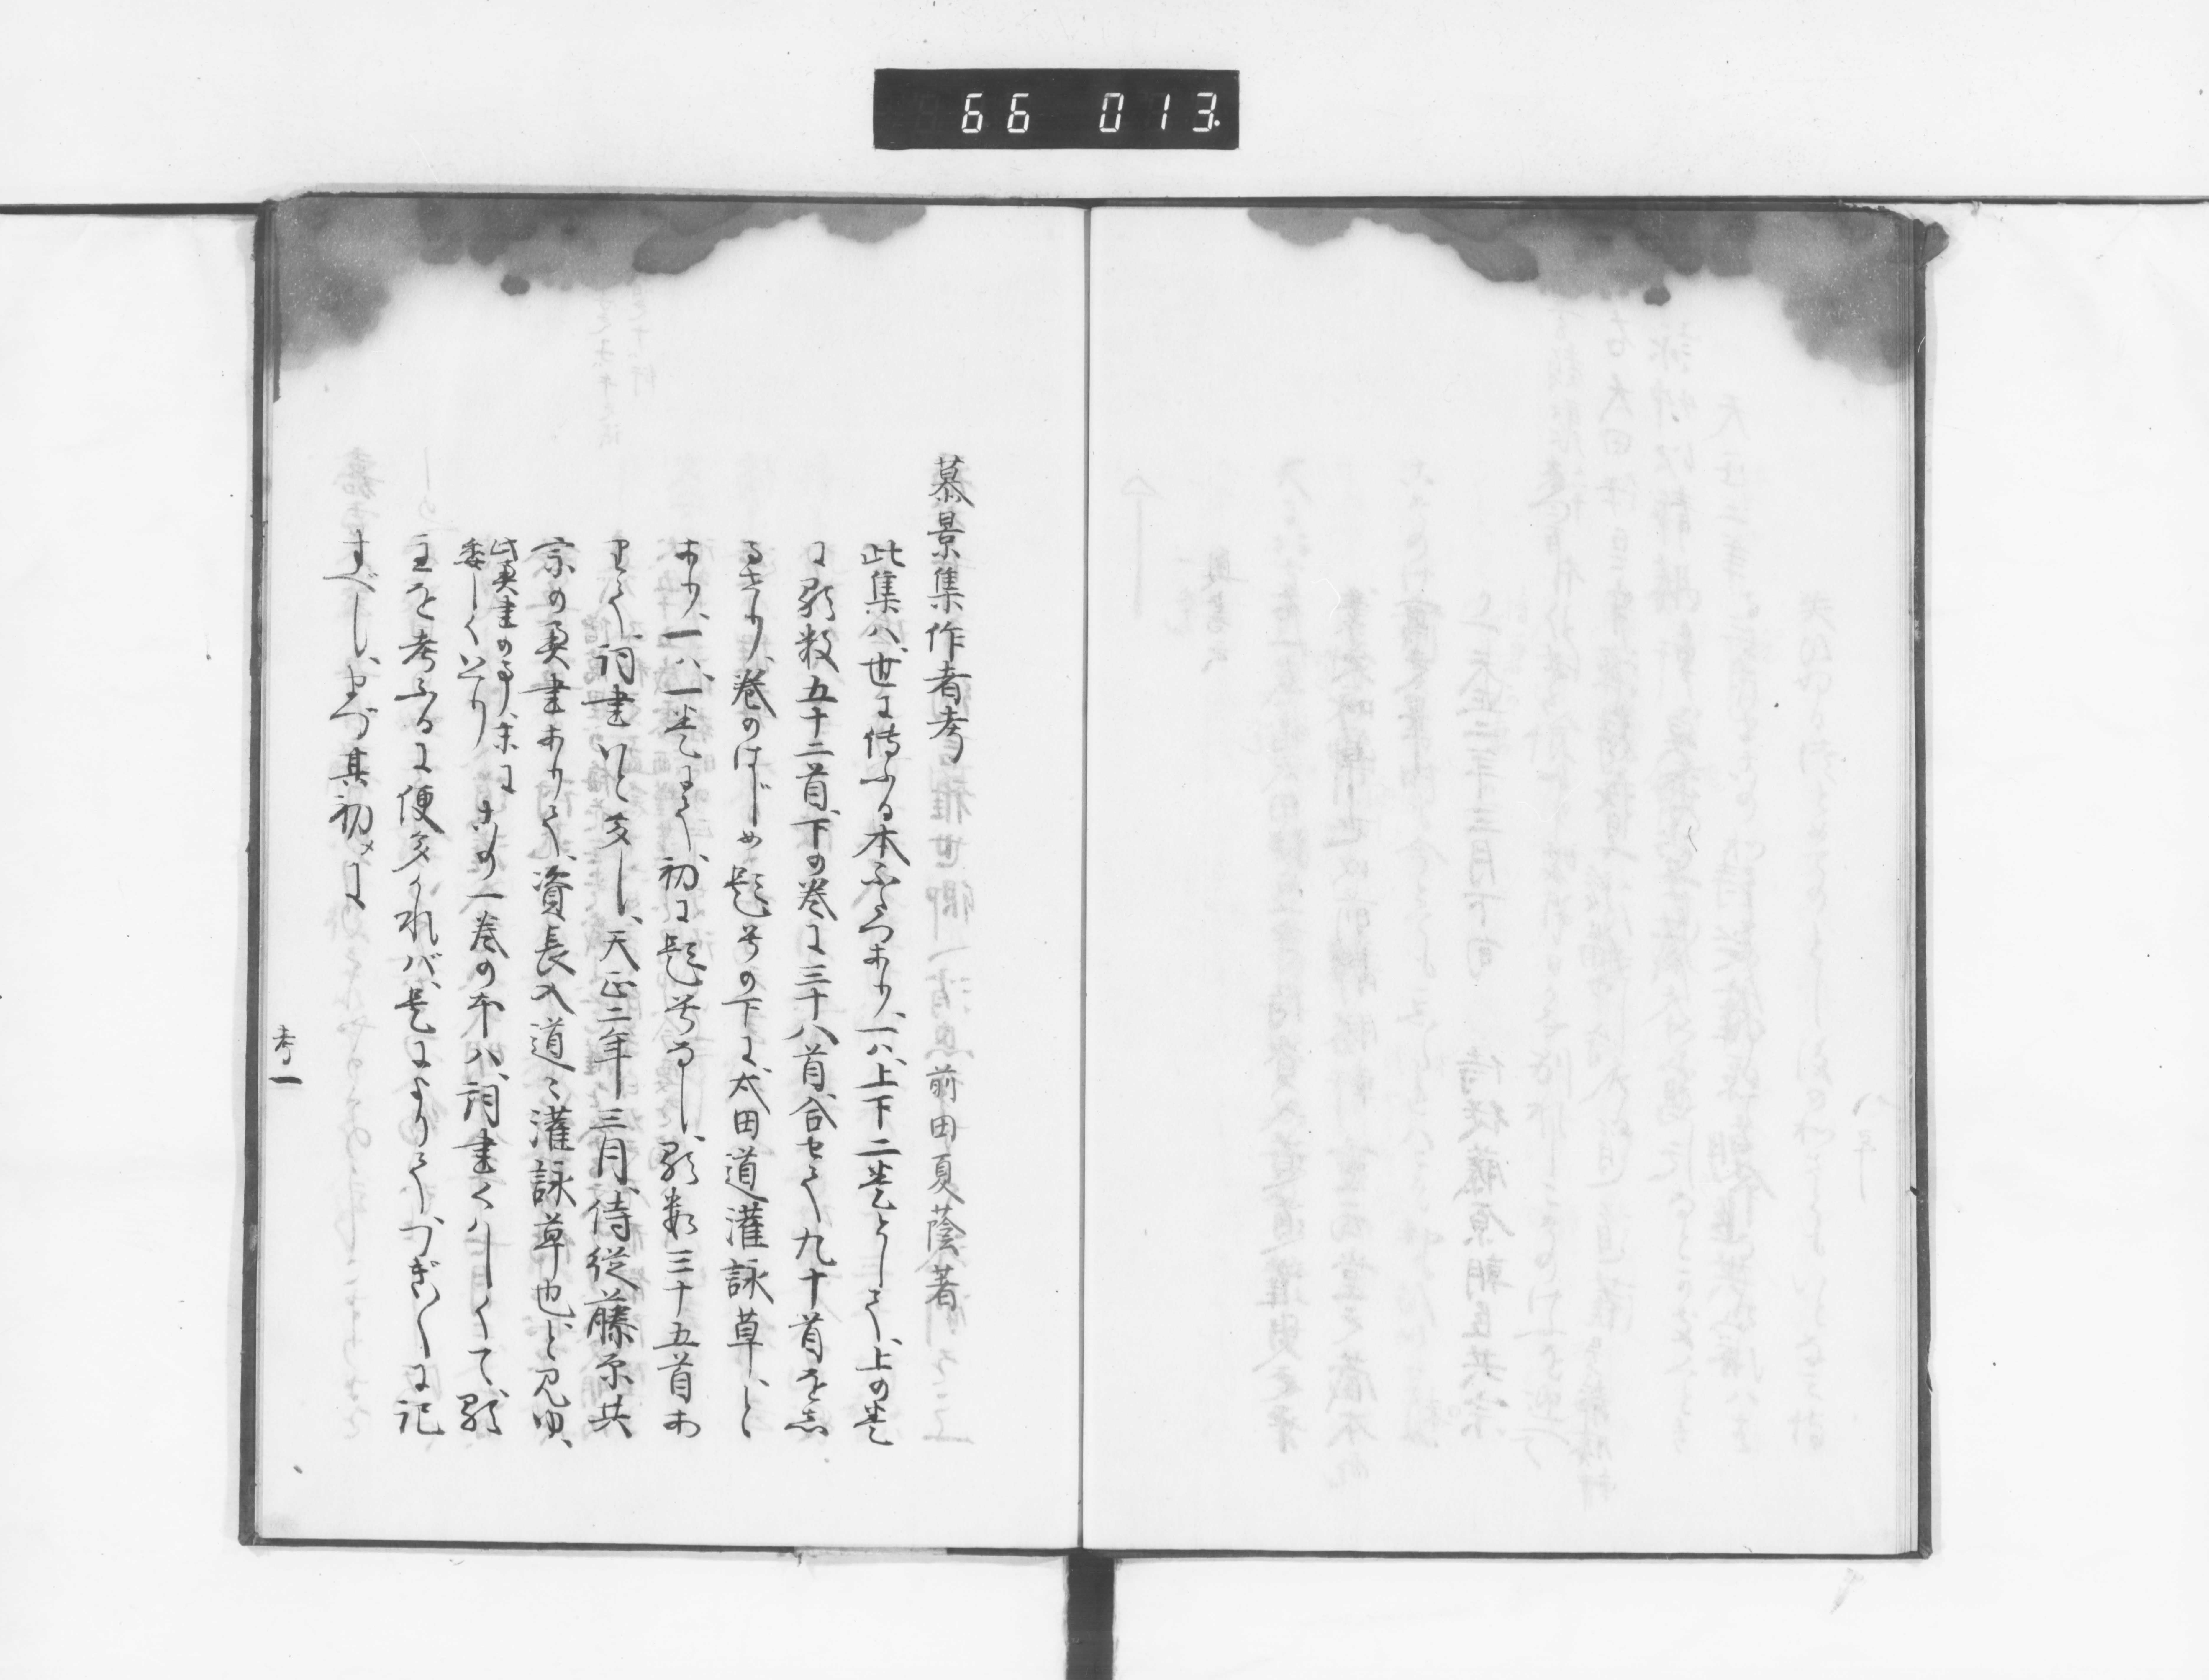 66 013.
慕景集作者考 前田夏蔭著
此集ハ、世に傳ふる本ふたつあり、一ハ、上下二巻として、上の巻
に歌数五十二首、下の巻に三十八首、合セて九十首を志
るせり、巻のはじめ題号の下に、太田道灌詠草、と
あり、一ハ、一巻にて、初に題号なし、歌数三十五首あ
りて、詞書いと多し、天正二年三月、侍従藤原共
宗の奥書ありて、資長入道〻灌詠草也、と見ゆ、
此奥書の事、末に
委しくいへり、
此一巻の本ハ、詞書くハしくて、歌
主を考ふるに便多かれバ、是によりて、つぎ〱に記
すべし、まづ其初メに
考一